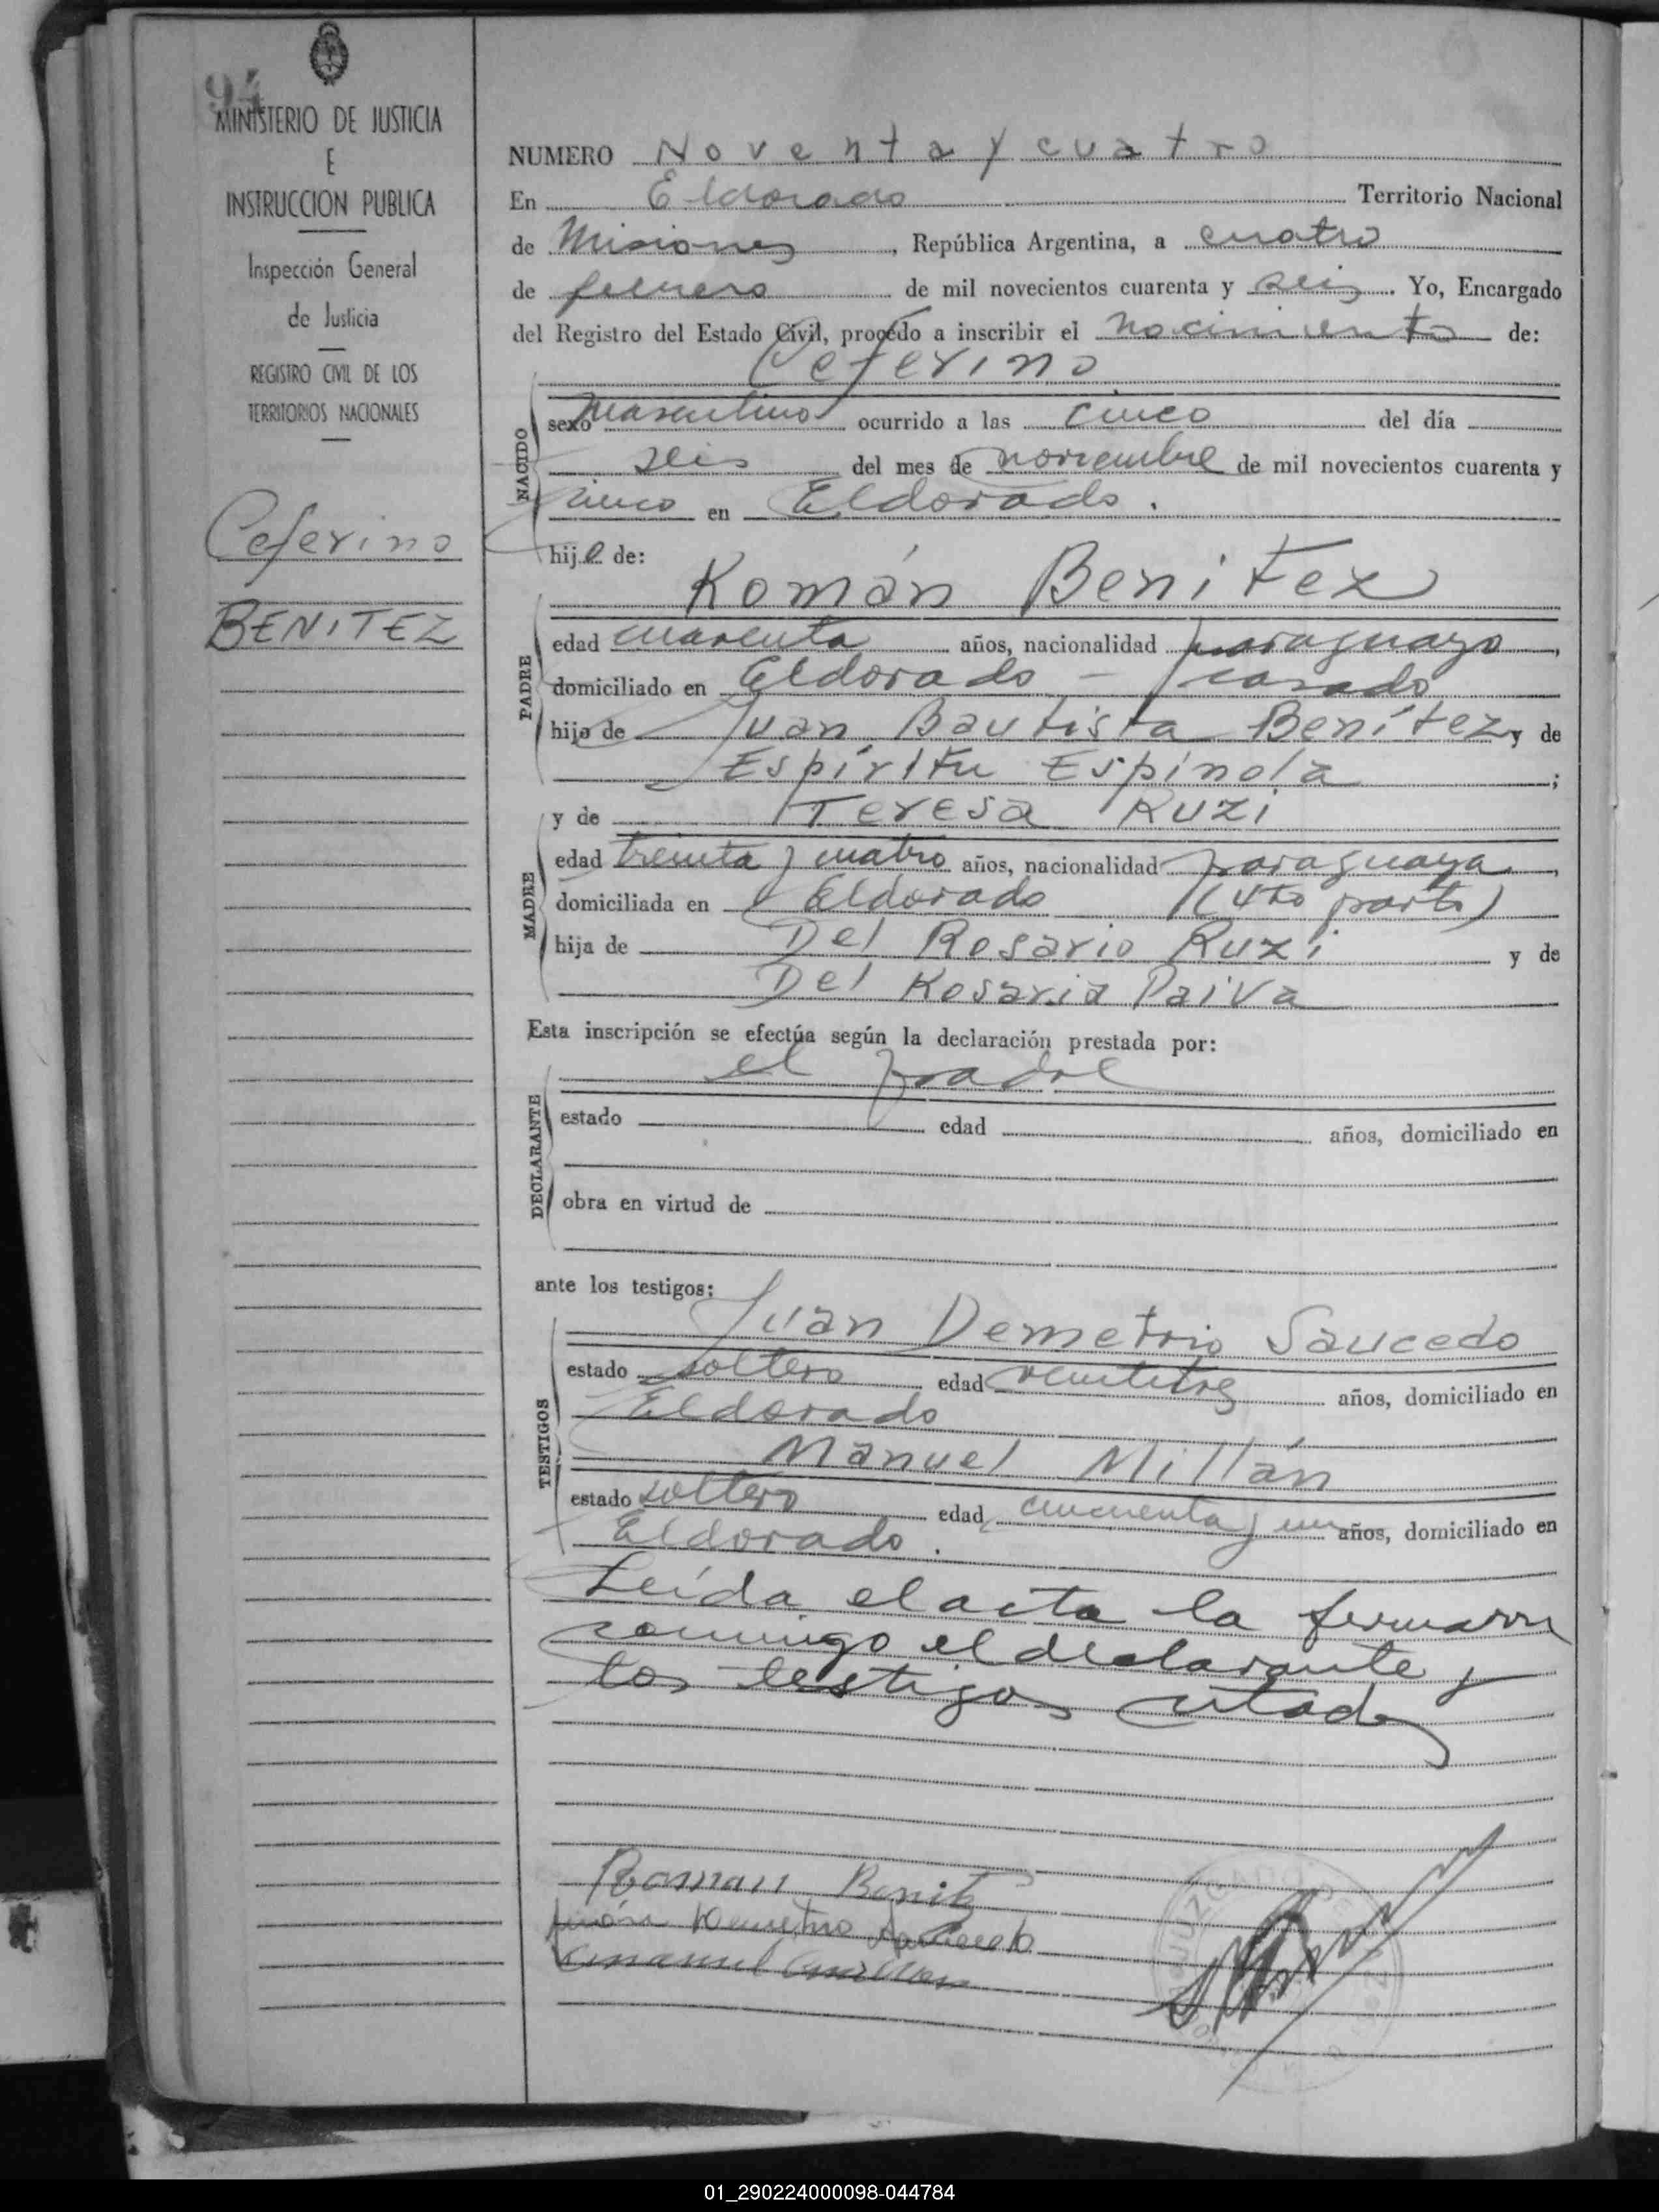 94
MINISTERIO DE JUSTICIA
E
INSTRUCCION PUBLICA
Inspección General
de Justicia
REGISTRO CIVIL DE LOS
TERRITORIOS NACIONALES
Ceferino
BENITEZ
NUMERO Noventa y cuatro
En Eldorado Territorio Nacional
de Misiones, República Argentina, a cuatro
de febrero de mil novecientos cuarenta y seis. Yo, Encargado
del Registro del Estado Civil, procedo a inscribir el nacimiento de:
Ceferino
NACIDO
sexo masculino ocurrido a las cinco del día
seis del mes de noviembre de mil novecientos cuarenta y
cinco en Eldorado.
hijo de:
Román Benitez
PADRE
edad cuarenta años, nacionalidad paraguayo,
domiciliado en Eldorado - casado
hijo de Juan Bautista Benítez y de
Espíritu Espínola;
y de Teresa Ruzi
MADRE
edad treinta y cuatro años, nacionalidad paraguaya,
domiciliada en Eldorado (4to parto)
hija de Del Rosario Ruzi y de
Del Rosaria Paiva
Esta inscripción se efectúa según la declaración prestada por:
el padre
DECLARANTE
estado edad años, domiciliado en
obra en virtud de
ante los testigos:
Juan Demetrio Saucedo
TESTIGOS
estado soltero edad veintitres años, domiciliado en
Eldorado
Manuel Millán
estado soltero edad cincuenta y un años, domiciliado en
Eldorado.
Leída el acta la firmaron
conmigo el declarante y
los testigos citados
Roman Benitez
Juan Demetrio Saucedo
Manuel Millan
JUZGADO
01_290224000098-044784